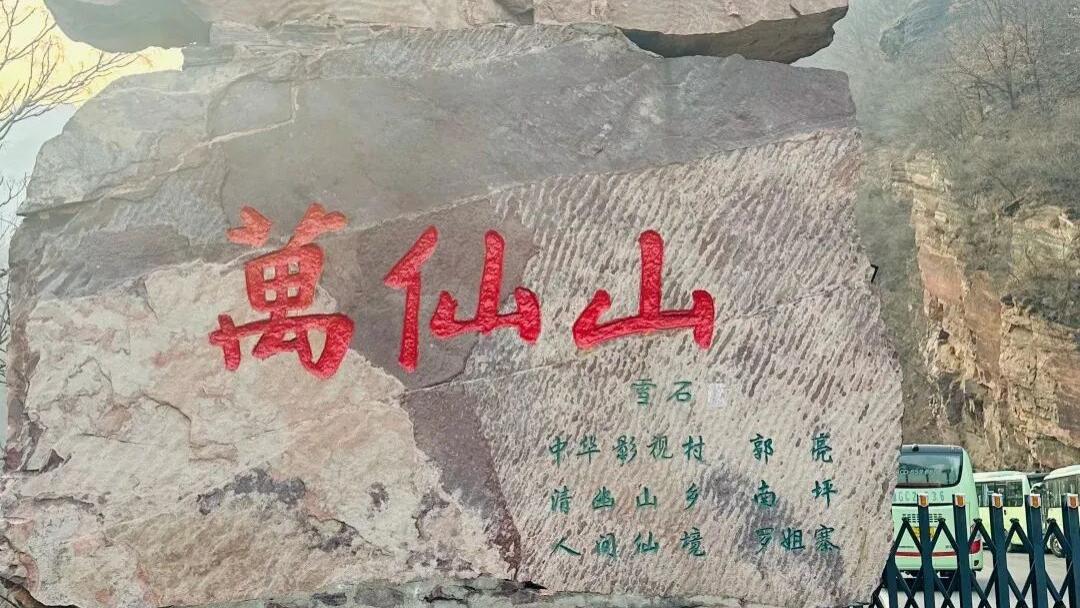 萬仙山
雪石
中华影视村 郭亮
清幽山乡 南坪
人间仙境 罗姐寨